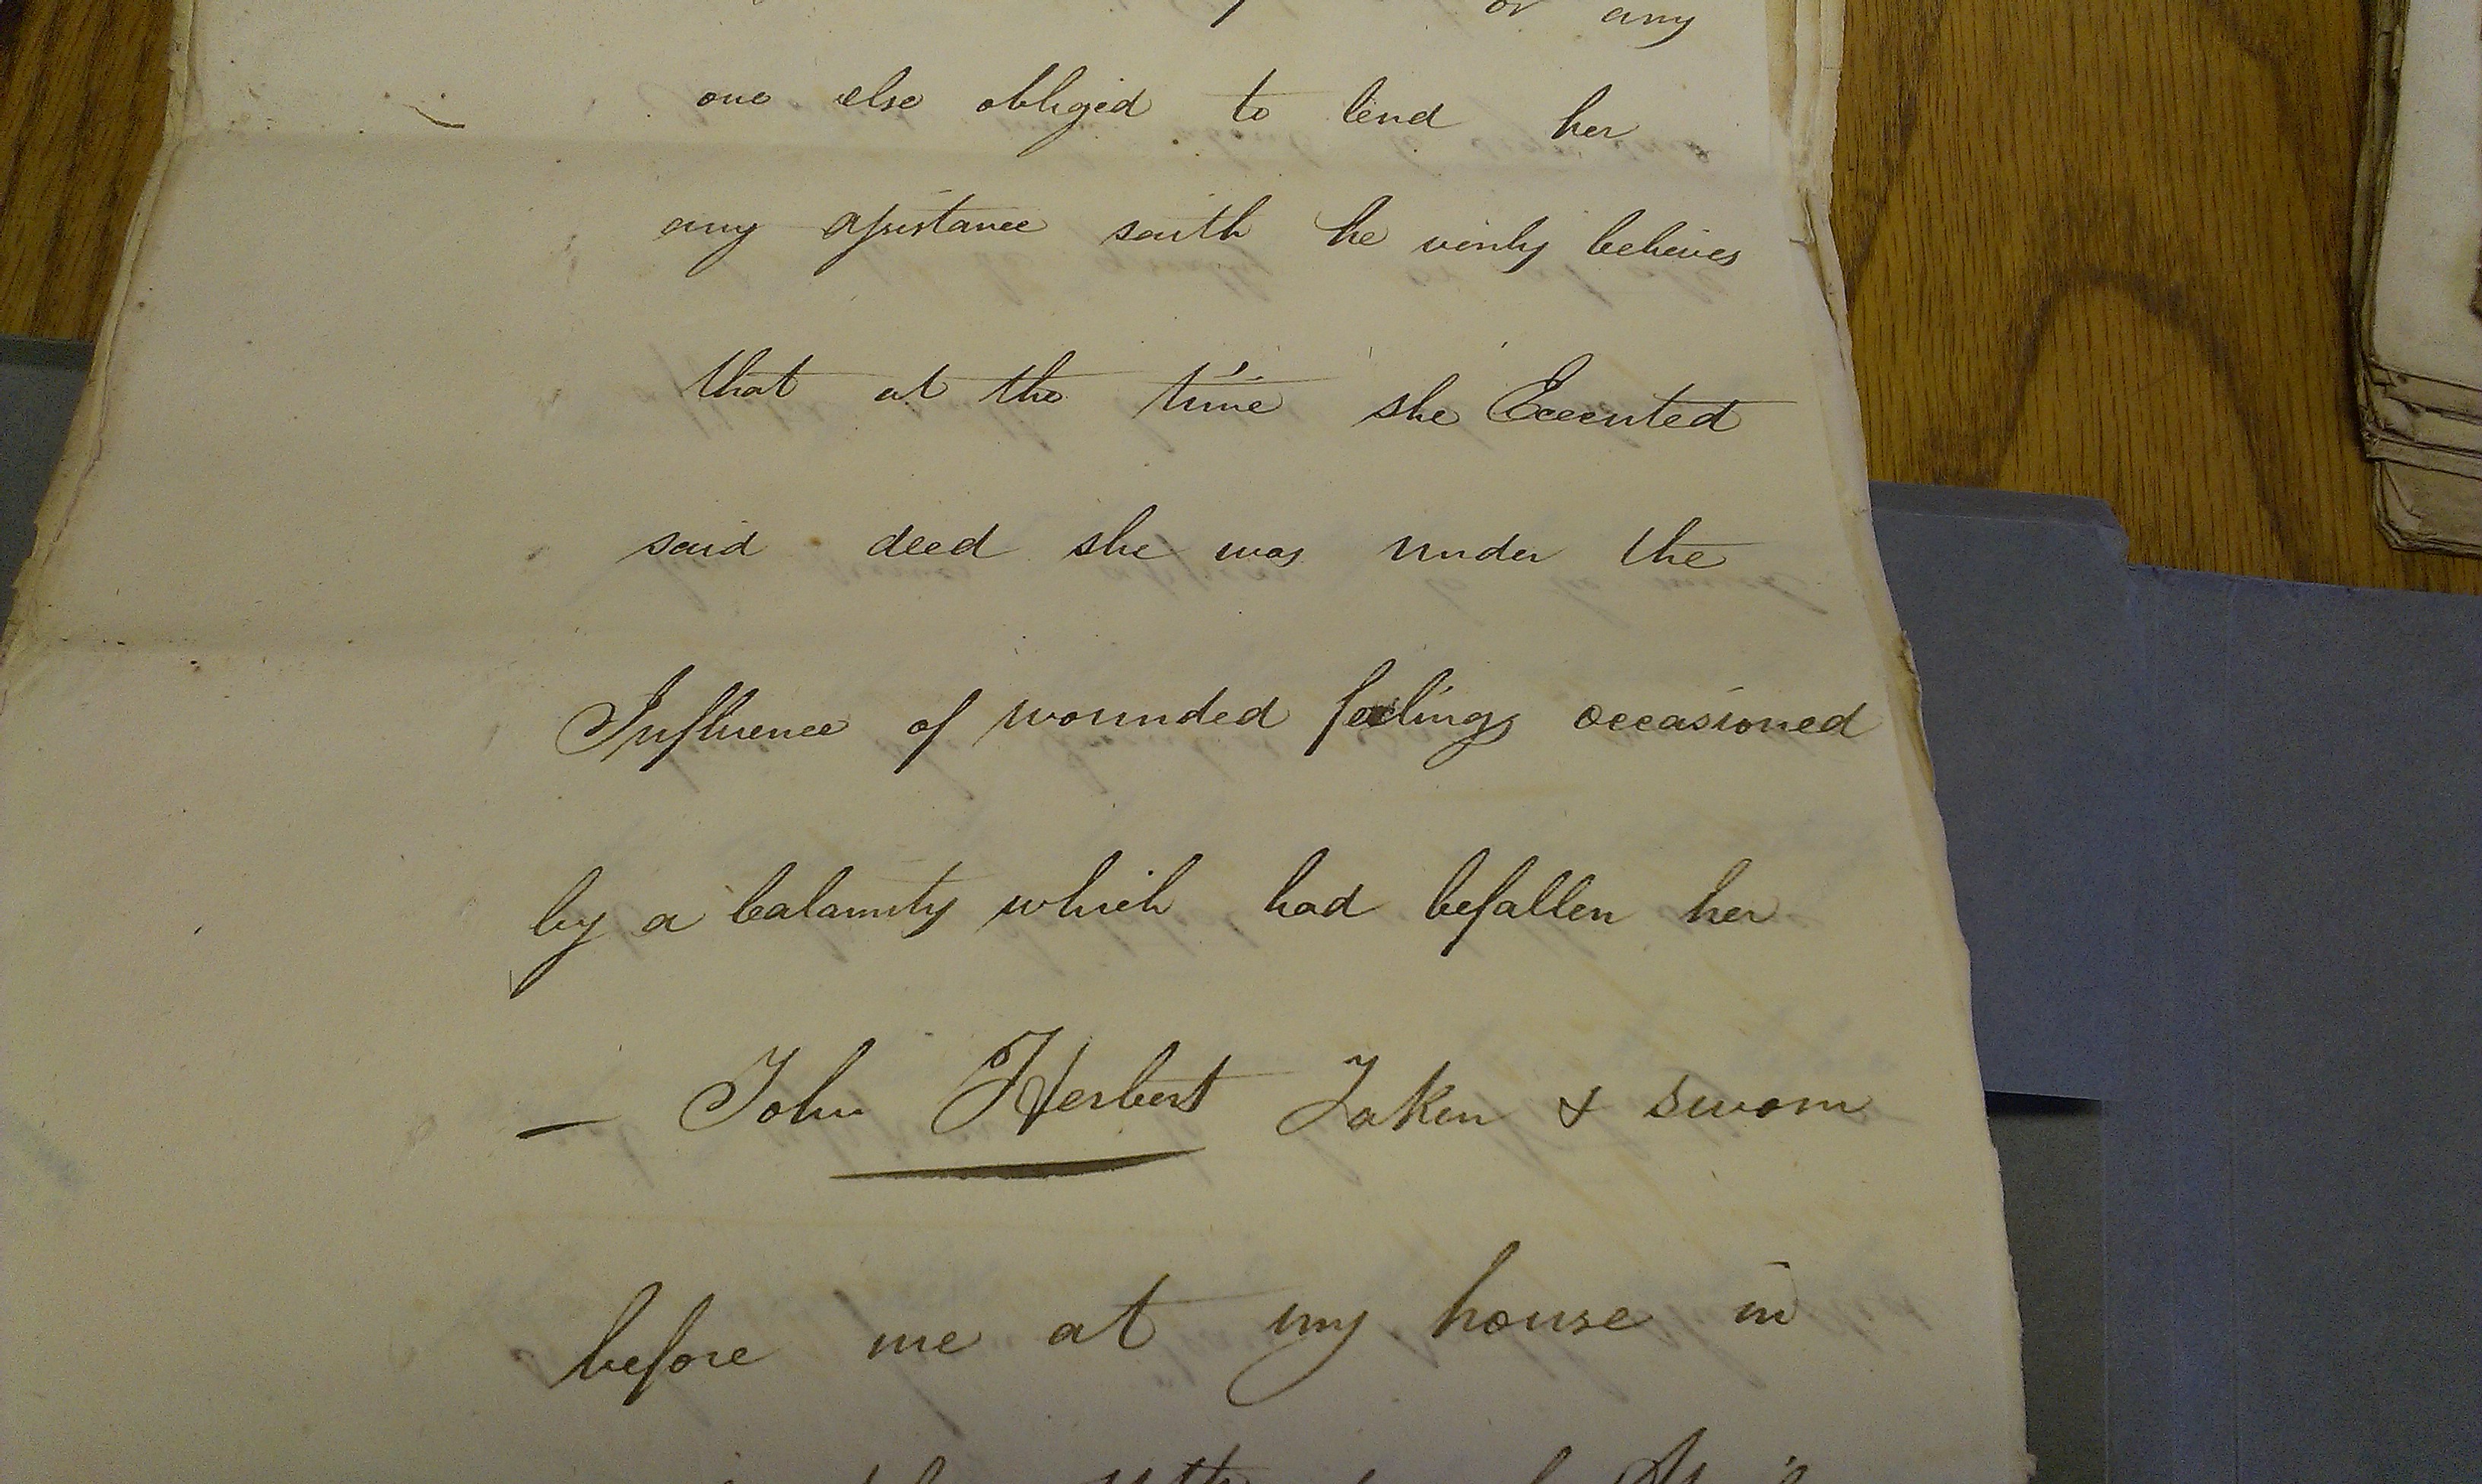 or any
one else obliged to lend her
any assistance saith he verily believes
that at the time she Executed
said deed she was under the
Influence of wounded feelings occasioned
by a Calamity which had befallen her
— John Herbert Taken & sworn
before me at my house in